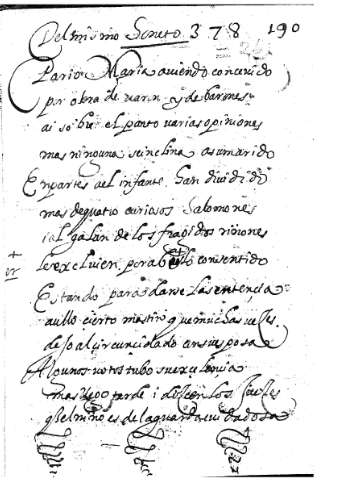 Del mismo Soneto 378 190
Pario Maria auiendo conceuido
por obra de uaron y de barones
ai sobre el parto uarias opiniones
mas ninguna se inclina a su marido
En partes al infante han diuidido
mas de quatro curiosos Salomones
i al galan de los riñones
le excluien por consentido
Estando para darse la sentencia
aullo cierto mastin que muchas ueses
de so al circuncidado en su esposa
Algunos uotos tubo su
mas llego tarde i disen los Jueses
qe el niño es de la guarda cuidadosa